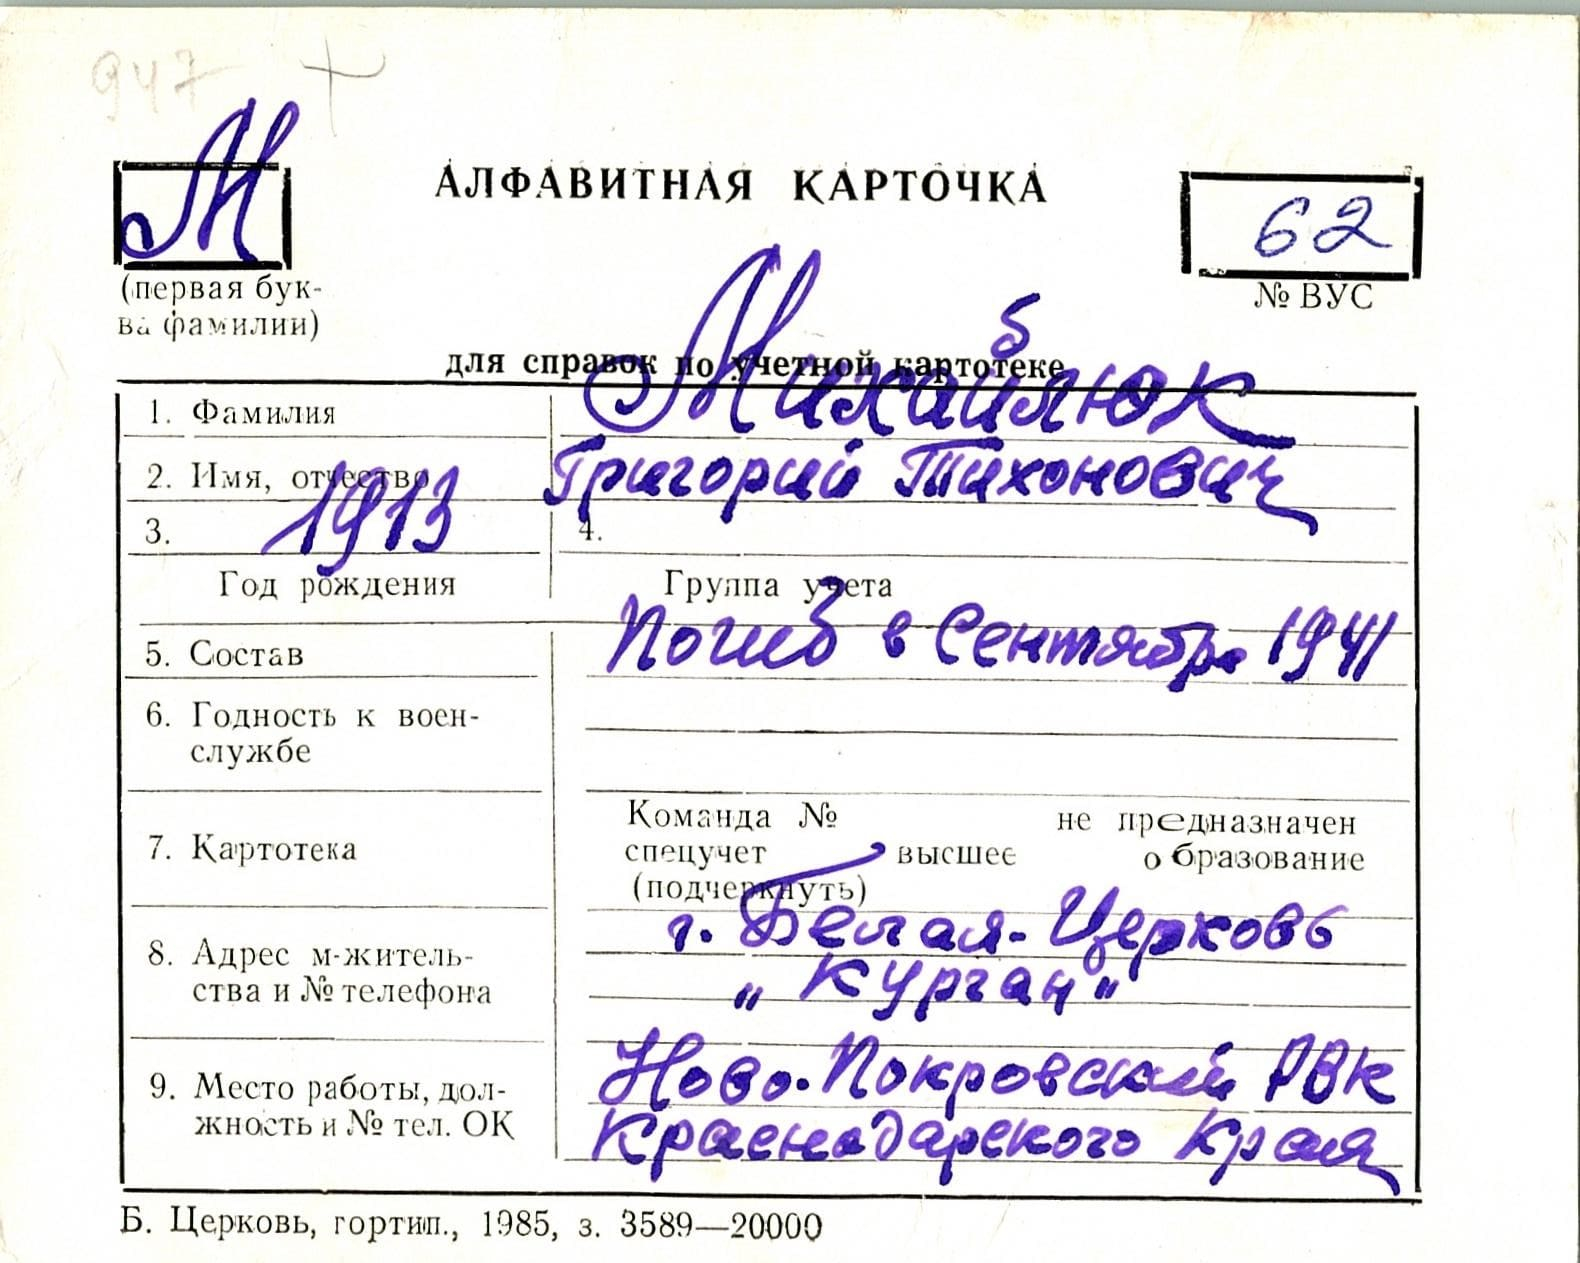 947
М
АЛФАВИТНАЯ КАРТОЧКА
62
(первая бук-
ва фамилии)
№ ВУС
для справок по учетной картотеке
1. Фамилия Михайлюк
2. Имя, отчество Григорий Тихонович
3. 1913 4.
Год рождения Группа учета
5. Состав Погиб в Сентябре 1941
6. Годность к воен-
службе
Команда № не предназначен
7. Картотека спецучет высшее образование
(подчеркнуть)
г. Белая-Церковь
8. Адрес м-житель-
ства и № телефона „Курган"
9. Место работы, дол- Ново-Покровский РВК
жность и № тел. ОК Краснодарского Края
Б. Церковь, гортип., 1985, з. 3589—20000